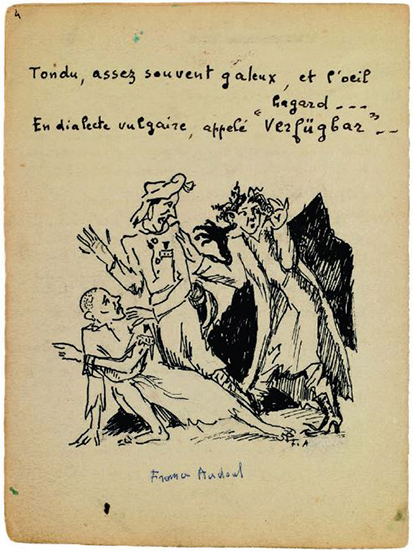 4
Tondu, assez souvent galeux, et l'oeil
hagard ---
En dialecte vulgaire, appelé "Verfügbar" --
F. A
France Audoul